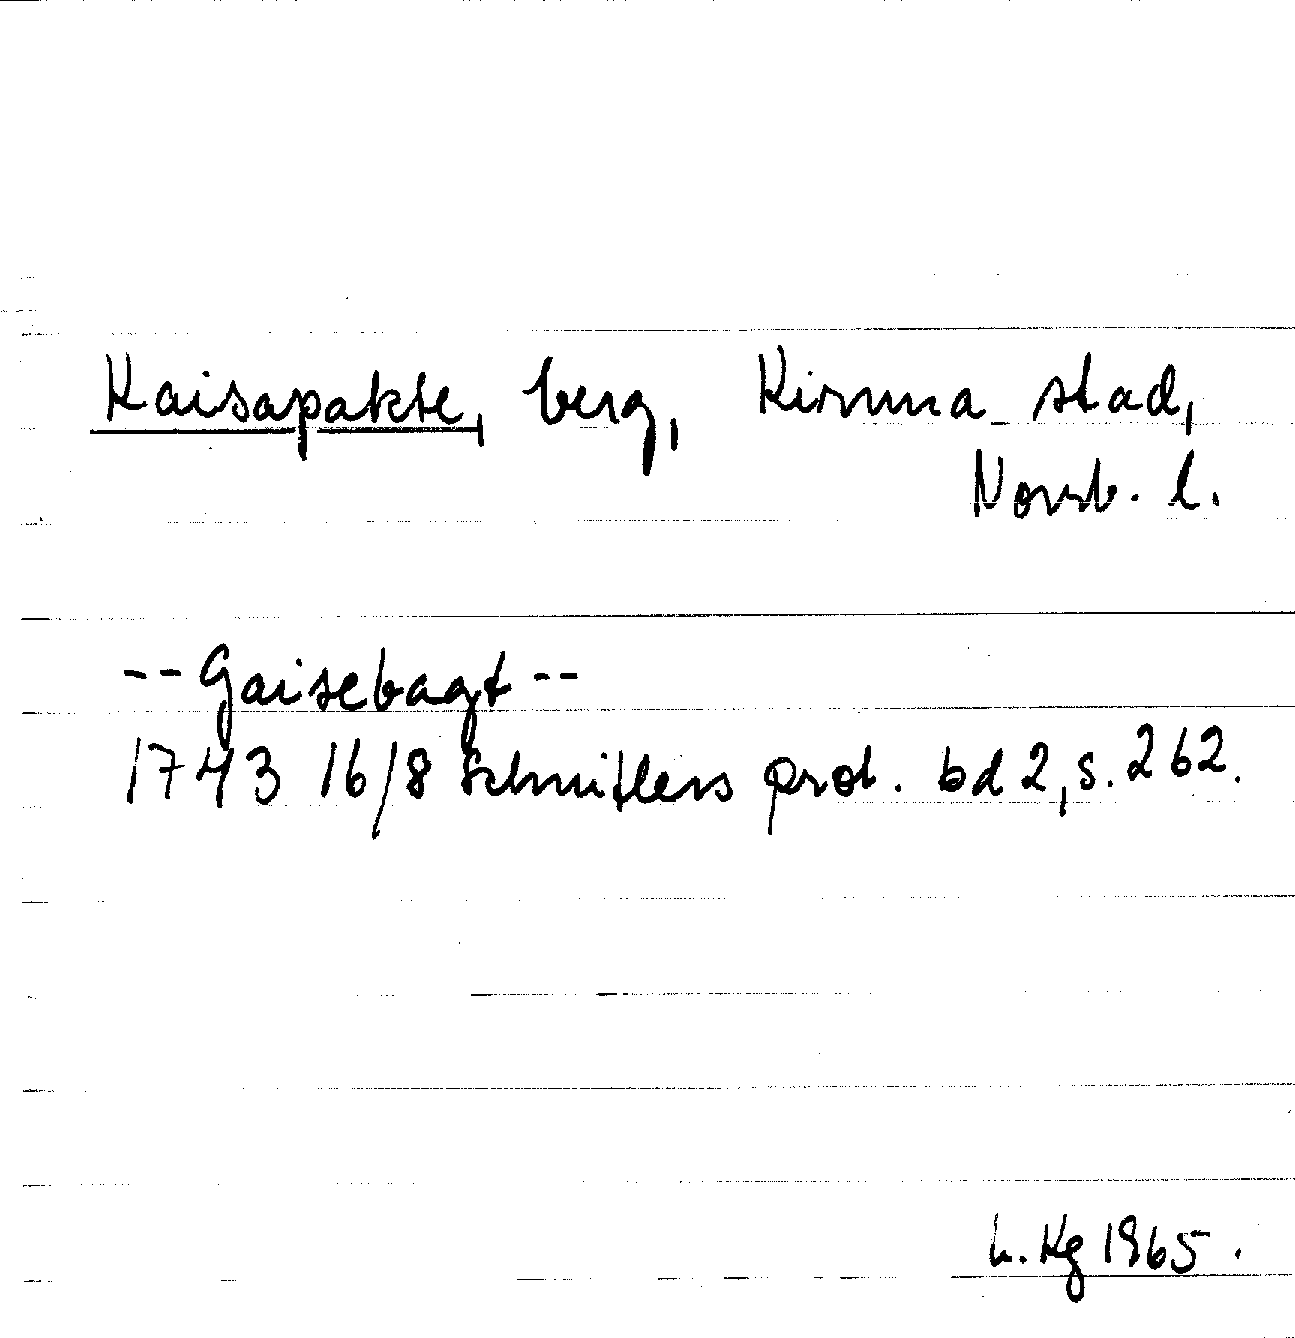 Kaisapakte, berg, Kiruna stad,
Norrb. l.
-- Gaisebagt --
1743 16/8 Schnitlers prot. bd 2, s. 262.
L. Kg 1965.